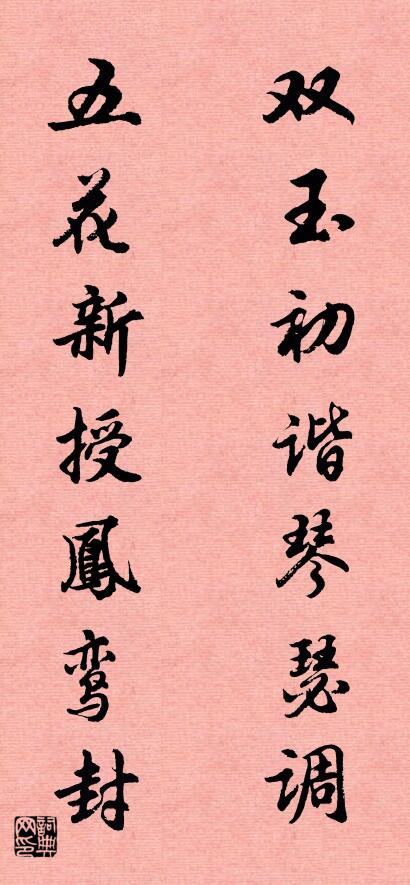 双玉初谐琴瑟调
五花新授鳳鸾封
詞典网印